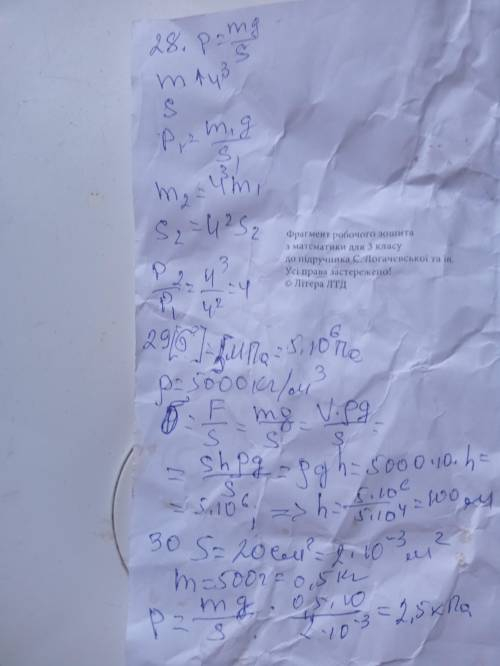 28. P = mg/S
m ↑ 4³
S
P₁ = m₁g/S₁
m₂ = 4³m₁
S₂ = 4²S₂
P₂/P₁ = 4³/4² = 4
Фрагмент робочого зошита
з математики для 3 класу
до підручника С. Логачевської та ін.
Усі права застережено!
© Літера ЛТД
29 [σ] = 5МПа = 5·10⁶Па
ρ = 5000 кг/м³
σ = F/S = mg/S = V·ρg/S =
= Shρg/S = ρgh = 5000·10·h =
= 5·10⁶, => h = 5·10⁶/5·10⁴ = 100 м
30 S = 20 см² = 2·10⁻³ м²
m = 500г = 0,5 кг
P = mg/S = 0,5·10/2·10⁻³ = 2,5 кПа